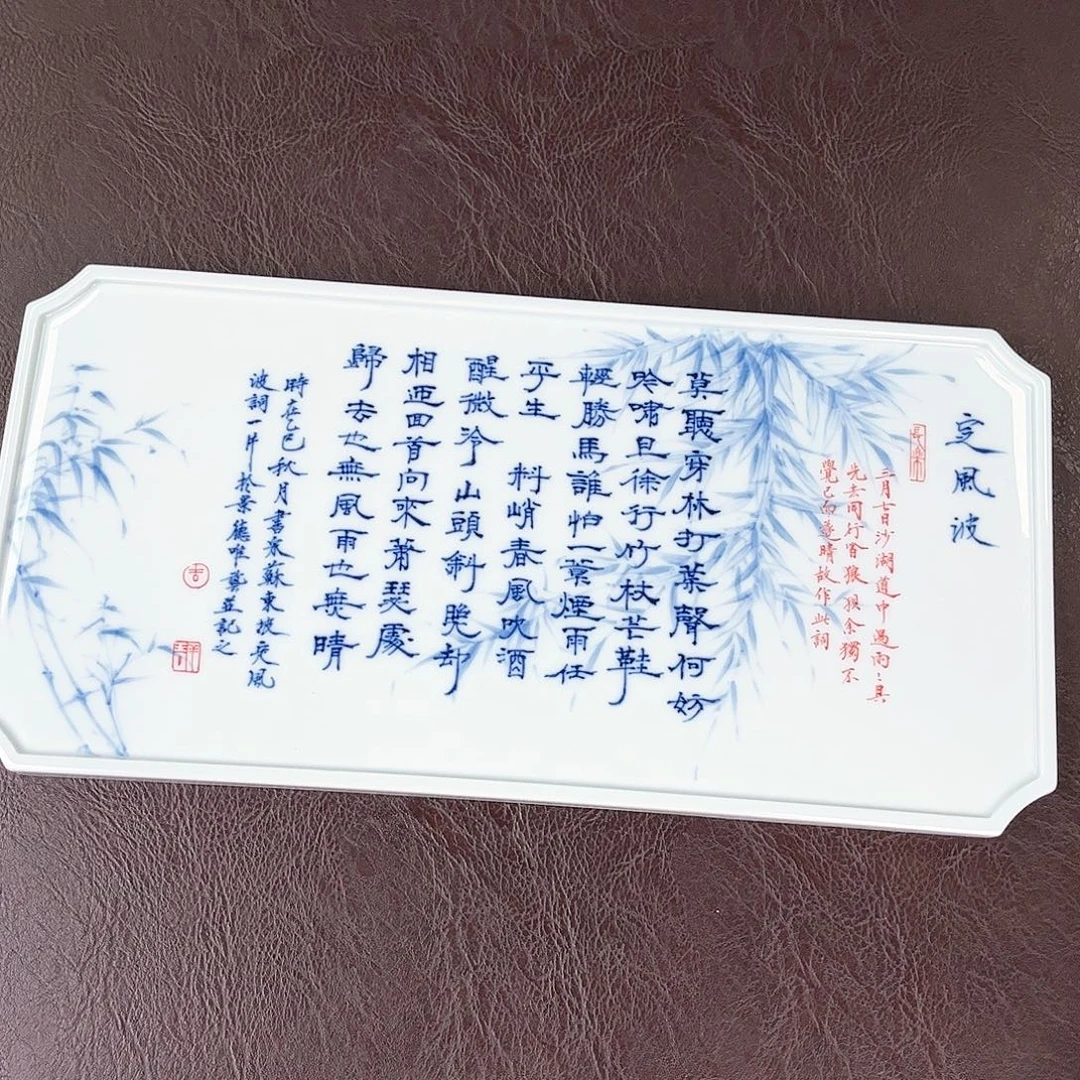 定風波
長樂
三月七日沙湖道中遇雨：具
先去同行皆狼狽余獨不
覺已而遂晴故作此詞
莫聽穿林打葉聲何妨
吟嘯且徐行竹杖芒鞋
輕勝馬誰怕一蓑煙雨任
平生 料峭春風吹酒
醒微冷山頭斜晚却
相迎回首向來蕭瑟處
歸去也無風雨也無晴
時在乙巳秋月書宋蘇東坡定風
波詞一片於景德唯並記之
吉